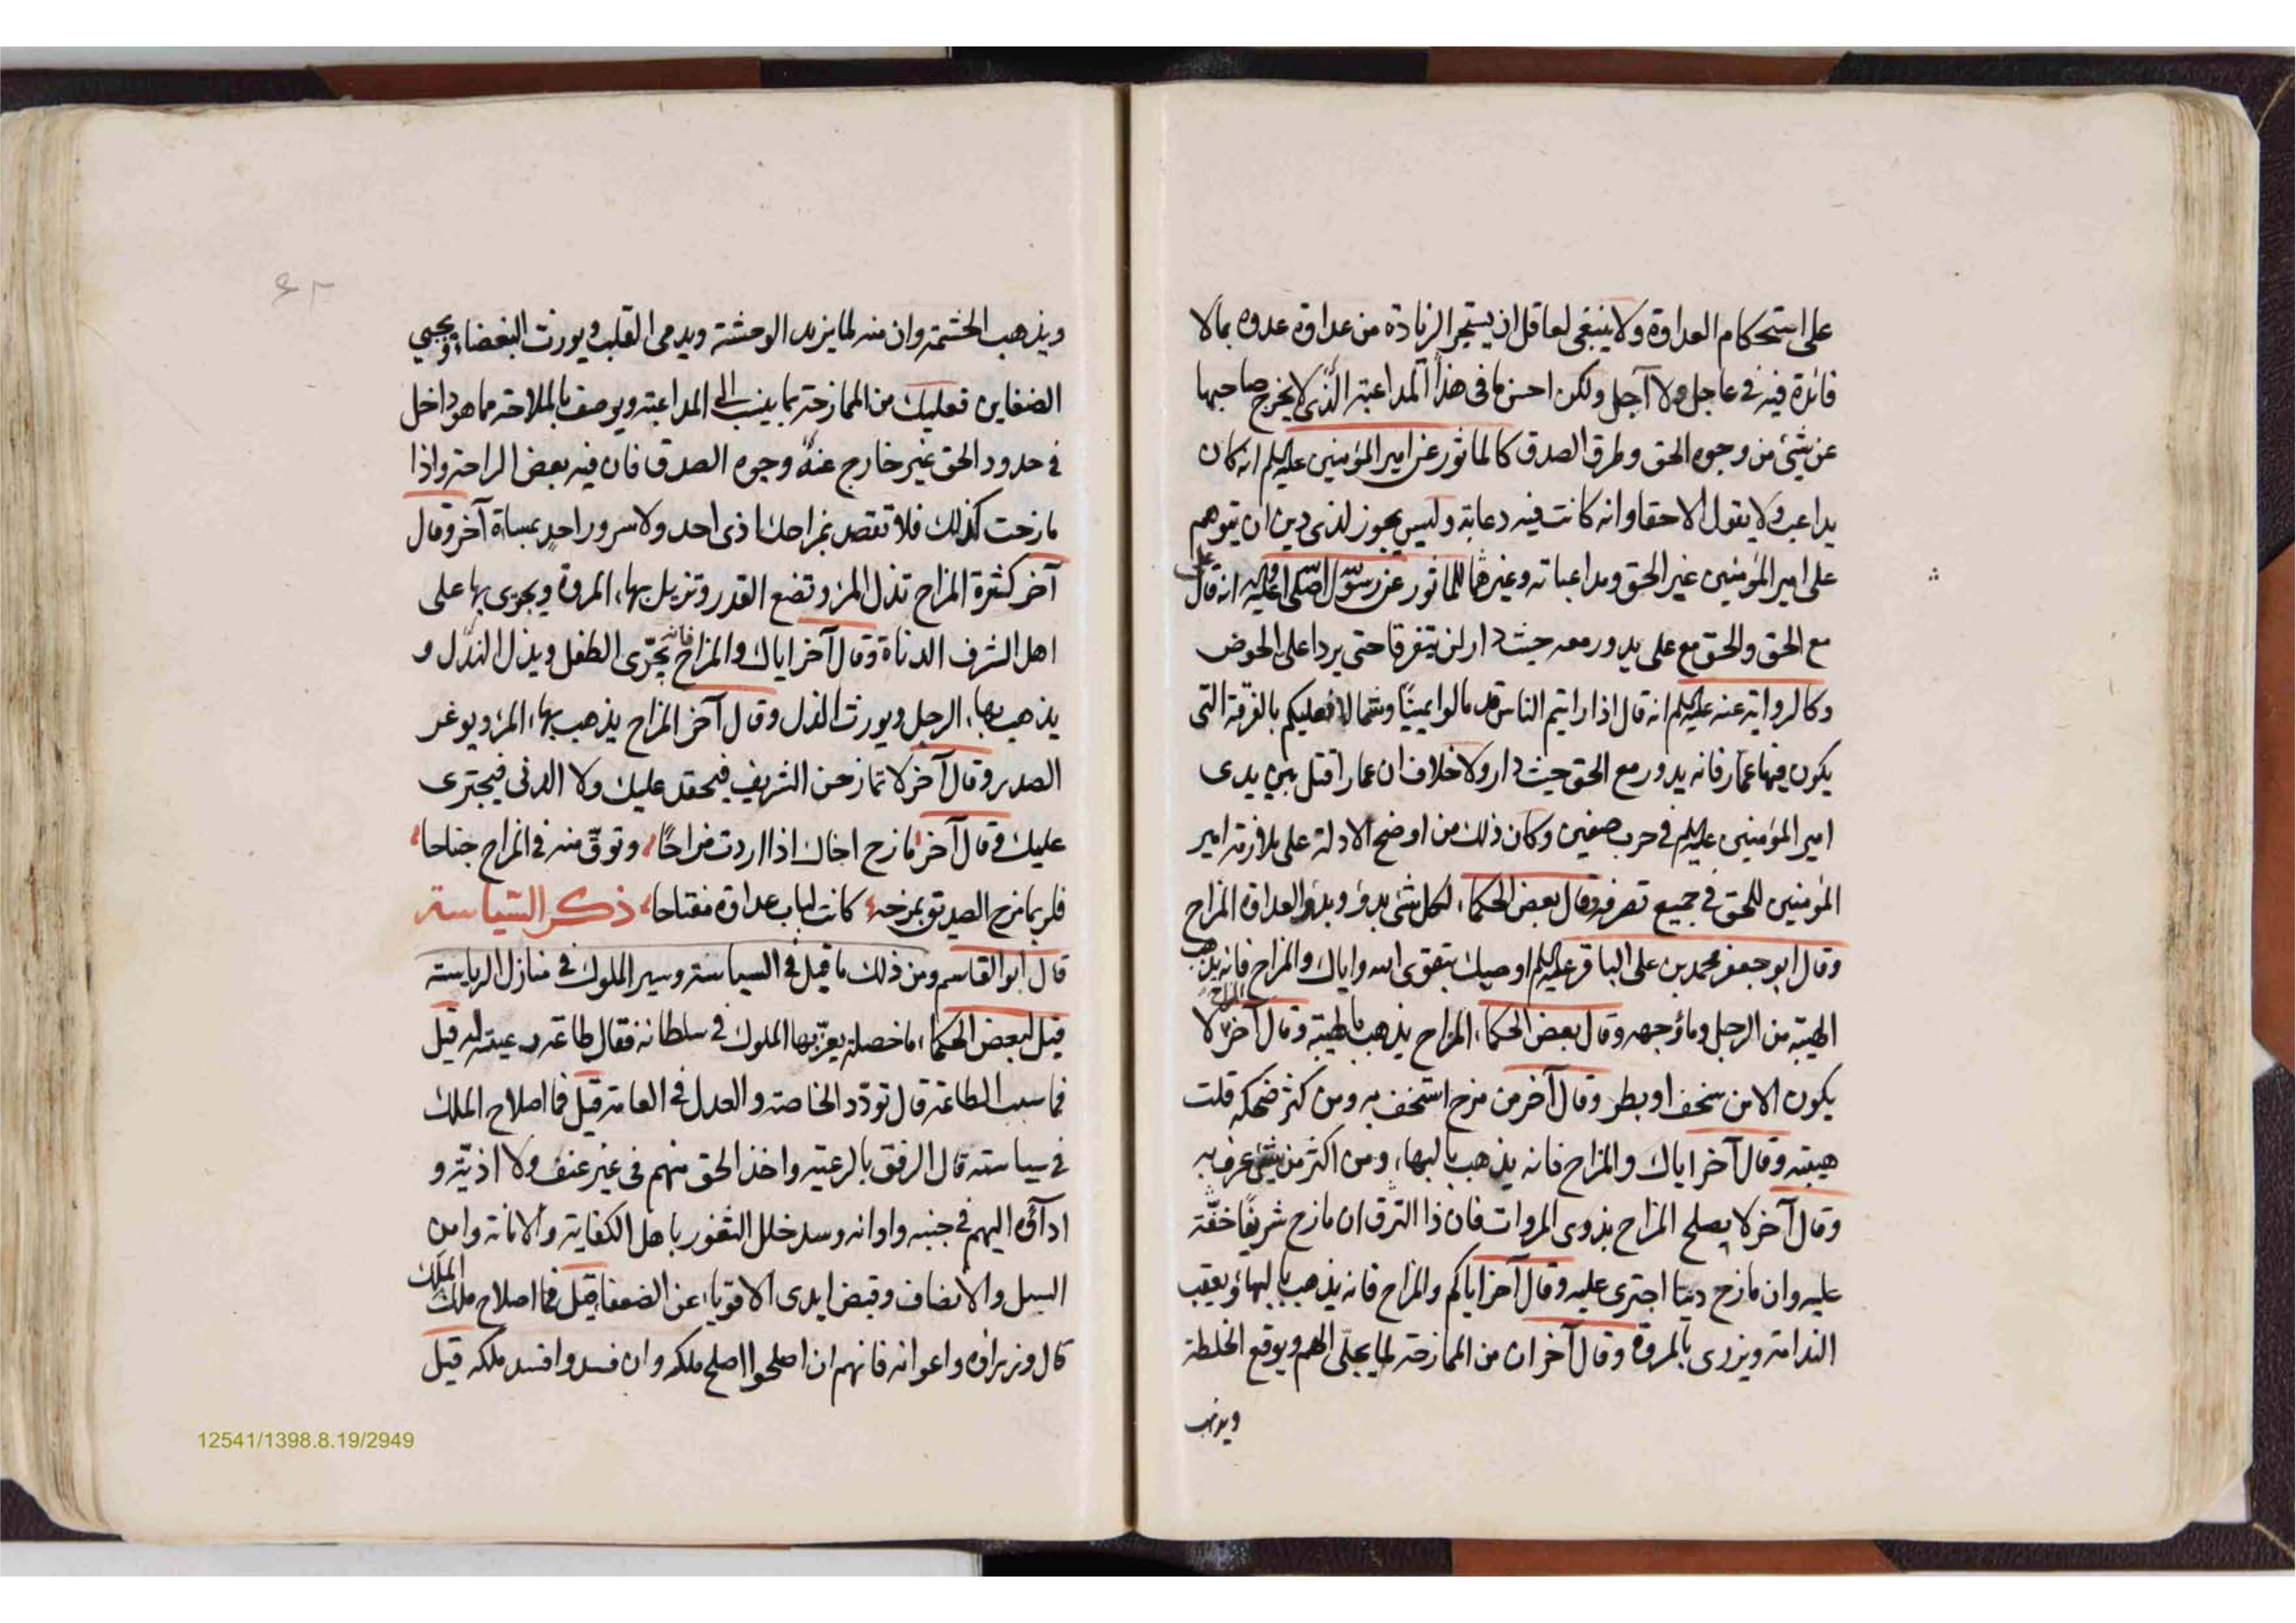 على استحكام العداوة ولا ينبغى لعاقل ان يستجر الزيادة من عداوة عدوه بمالا
فائدة فيه فى عاجل ولا آجل ولكن احسن ما فى هذا المداعبة الذى لا يخرج صاحبها
عن شئ من وجوه الحق وطرق الصدق كالماثور عن امير المؤمنين عليه السلم انه كان
يداعب ولا يقول الا حقا وانه كانت فيه دعابة وليس يجوز لذى دين ان يتوهم
على امير المؤمنين غير الحق ومداعباته وغيرها للماثور عن رسول الله صلى الله عليه واله انه قال على
مع الحق والحق مع على يدور معه حيث دار لن يتفرقا حتى يردا على الحوض
وكالرواية عنه عليه السلم انه قال اذا رايتم الناس قد مالوا يمينًا وشمالا فعليكم بالفرقة التى
يكون فيها عمار فانه يدور مع الحق حيث دار ولا خلاف ان عمارا قتل بين يدى
امير المؤمنين عليه السلم فى حرب صفين وكان ذلك من اوضح الادلة على ملازمة امير
المؤمنين للحق فى جميع تصرفه وقال بعض الحكماء لكل شئ بدؤ وبدؤ العداوة المزاح
وقال ابو جعفر محمد بن على الباقر عليه السلم اوصيك بتقوى الله واياك والمزاح فانه يذهب
الهيبة من الرجل وماؤ وجهه وقال بعض الحكماء المزاح يذهب بالهيبة وقال آخر المزاح لا
يكون الا من سخف او بطر وقال آخر من مزح استخف به ومن كثر ضحكه قلت
هيبته وقال آخر اياك والمزاح فانه يذهب بالبهاء ومن اكثر من شئ عرف به
وقال آخر لا يصلح المزاح بذوى المروات فان ذا الشرف ان مازح شريفًا خفّة
عليه وان مازح دنيا اجترى عليه وقال آخر اياكم والمزاح فانه يذهب بالبهاؤ ويعقب
الندامة ويزرى بالمروة وقال آخر ان من الممازحة لما يجلّى الهم ويوقع الخلطة
ويذهب
٦٢
ويذهب الحشمة وان منه لما يزيد الوحشة ويدمى القلب ويورث البغضاء ويحيي
الضغاين فعليك من الممازحة بما ينسب الى المداعبة ويوصف بالملاحة مما هو داخل
فى حدود الحق غير خارج عنه وجوه الصدق فان فيه بعض الراحة واذا
مازحت كذلك فلا تقصد بمزاحك اذى احد ولا سرور احدٍ بمساة آخر وقال
آخر كثرة المزاح تذل المرؤ وتضع القدر وتزيل بهاء المروة ويجرى بها على
اهل الشرف الدناة وقال آخر اياك والمزاح فانه يجرّى الطفل ويذل النذل و
يذهب بهاء الرجل ويورث الذل وقال آخر المزاح يذهب بهاء المرؤ ويوغر
الصدر وقال آخر لا تمازحن الشريف فيحقد عليك ولا الدنى فيجترى
عليك وقال آخر مازح اخاك اذا اردت مزاحًا وتوقّ منه فى المزاح جناحا
فلربما مزح الصديق بمزحه كانت لباب عداوة مفتاحا ذكر السياسة
قال ابو القاسم ومن ذلك ما قيل فى السياسة وسير الملوك فى منازل الرياسة
قيل لبعض الحكماء ما خصلة يعزّ بها الملوك فى سلطانه فقال طاعة رعيته له قيل
فما سبب الطاعة قال تودّد الخاصة والعدل فى العامة قيل فما اصلاح الملك
فى سياسته قال الرفق بالرعية واخذ الحق منهم فى غير عنف ولا اذيّة و
اداؤه اليهم فى جنبه واوانه وسد خلل الثغور باهل الكفاية والامانة وامن
السبل والانصاف وقبض ايدى الاقوياء عن الضعفاء قيل فما اصلاح ملك الملك
قال وزراؤه واعوانه فانهم ان اصلحوا اصلح ملكه وان فسدوا افسد ملكه قيل
12541/1398.8.19/2949